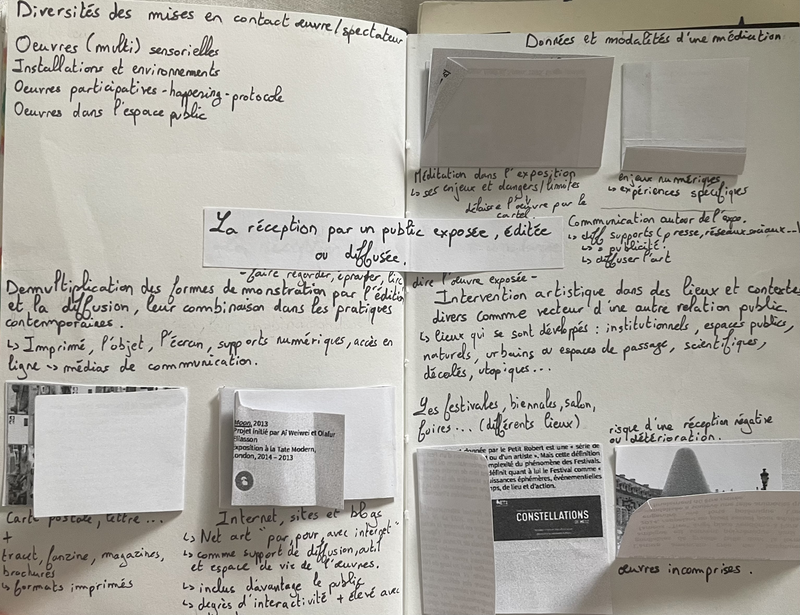 Diversités des mises en contact œuvre/spectateur
Oeuvres (multi) sensorielles
Installations et environnements
Oeuvres participatives - happening - protocole
Oeuvres dans l'espace public
Données et modalités d'une médiation
Méditation dans l'exposition
↳ ses enjeux et dangers/limites
délaisse l'œuvre par le
cartel.
enjeux numériques
↳ expériences spécifiques
Communication autour de l'expo.
↳ diff supports (presse, réseaux sociaux...)
↳ publicité.
↳ diffuser l'art
La réception par un public exposée, éditée
ou diffusée.
- faire regarder, éprouver, lire
dire l'œuvre exposée -
Demultiplication des formes de monstration par l'édition
et la diffusion, leur combinaison dans les pratiques
contemporaines.
↳ Imprimé, l'objet, l'écran, supports numériques, accès en
ligne ↝ médias de communication.
Intervention artistique dans des lieux et contextes
divers comme vecteur d'une autre relation public.
↳ lieux qui se sont développés : institutionnels, espaces publics,
naturels, urbains ou espaces de passage, scientifiques,
décalés, utopiques...
Les festivales, biennales, salon,
foires... (différents lieux)
risque d'une réception négative
ou détérioration.
Moon, 2013
Projet initié par Ai Weiwei et Olafur
Eliasson
exposition à la Tate Modern,
London, 2014 - 2013
donnée par le Petit Robert est une « série de
ou d'un artiste ». Mais cette définition
complexité du phénomène des Festivals.
définit quant à lui le Festival comme «
uissances éphémères, événementielles
ps, de lieu et d'action.
CONSTELLATIONS
DE METZ
Carte postale, lettre ...
+
tract, fanzine, magazines,
brochures
↳ formats imprimés
Internet, sites et blogs
↳ Net art "par, pour, avec internet"
↳ comme support de diffusion, outil
et espace de vie de l'œuvres.
↳ inclus davantage le public
↳ degrès d'interactivité + élevé avec
œuvres incomprises.